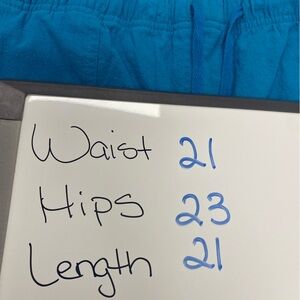 Waist 21
Hips 23
Length 21